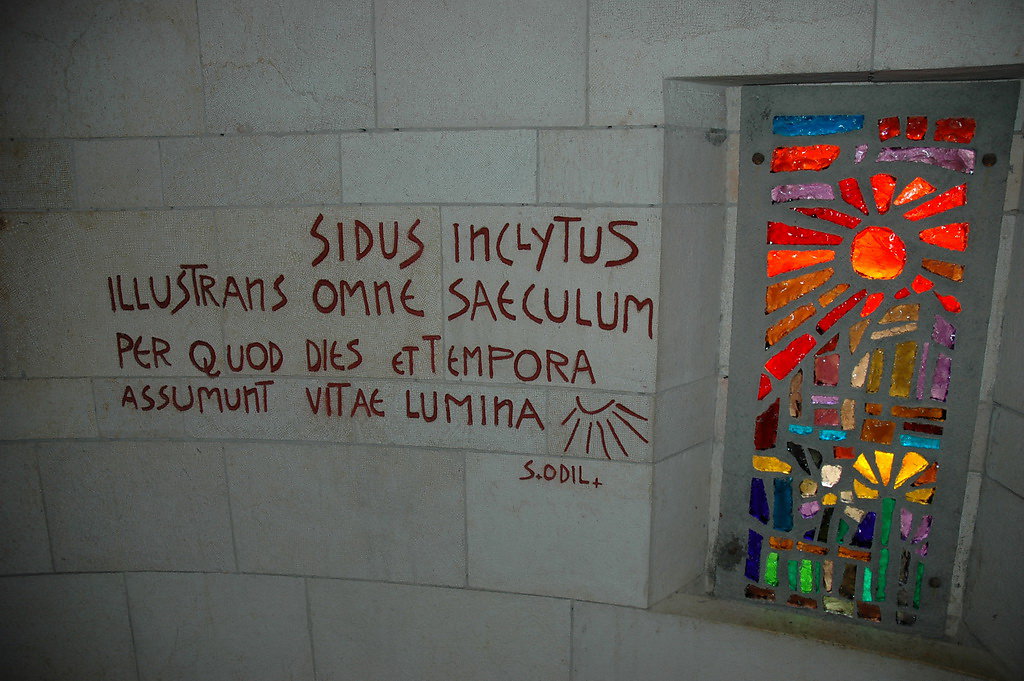 SIDUS INCLYTUS
ILLUSTRANS OMNE SAECULUM
PER QUOD DIES ET TEMPORA
ASSUMUNT VITAE LUMINA
S.ODIL+